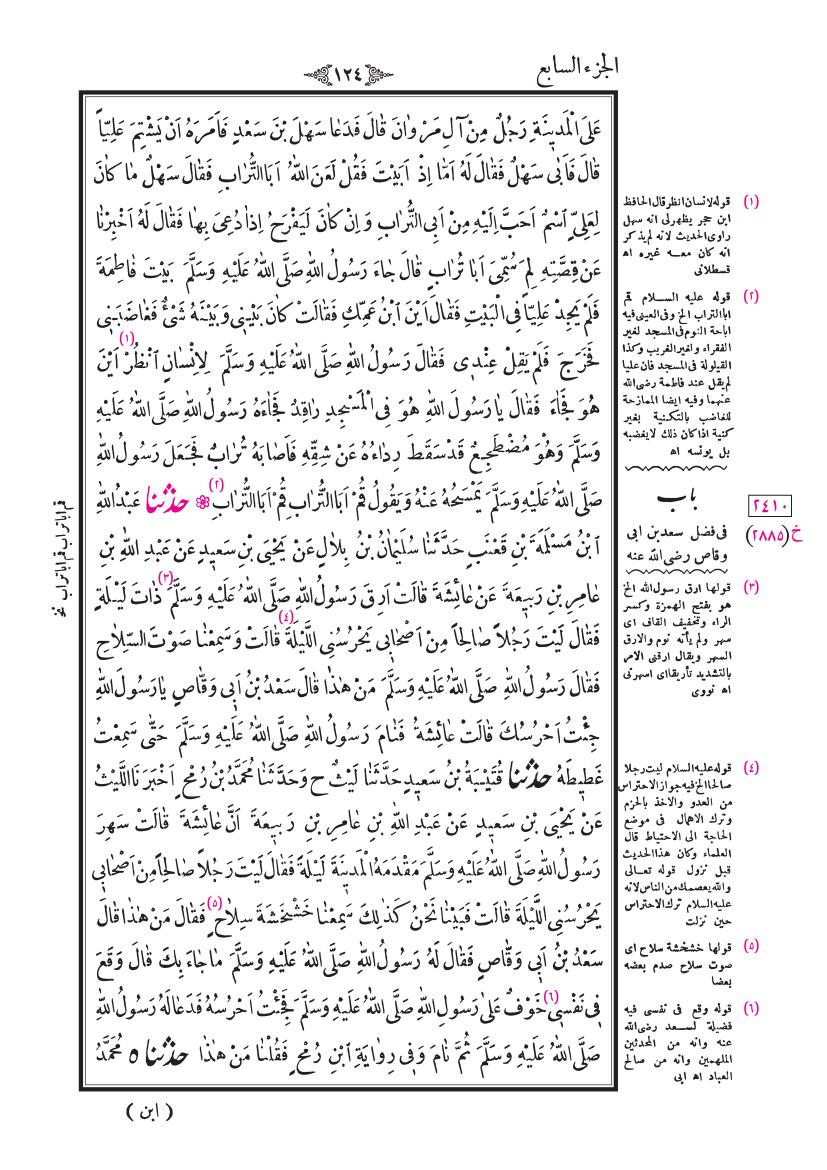 الجزء السابع
١٢٤
عَلَى الْمَدِينَةِ رَجُلٌ مِنْ آلِ مَرْوَانَ قَالَ فَدَعَا سَهْلَ بْنَ سَعْدٍ فَأَمَرَهُ أَنْ يَشْتِمَ عَلِيًّا
قَالَ فَأَبَى سَهْلٌ فَقَالَ لَهُ أَمَّا إِذْ أَبَيْتَ فَقُلْ لَعَنَ اللهُ أَبَا التُّرَابِ فَقَالَ سَهْلٌ مَا كَانَ
لِعَلِيٍّ اسْمٌ أَحَبَّ إِلَيْهِ مِنْ أَبِي التُّرَابِ وَإِنْ كَانَ لَيَفْرَحُ إِذَا دُعِيَ بِهَا فَقَالَ لَهُ أَخْبِرْنَا
عَنْ قِصَّتِهِ لِمَ سُمِّيَ أَبَا تُرَابٍ قَالَ جَاءَ رَسُولُ اللهِ صَلَّى اللهُ عَلَيْهِ وَسَلَّمَ بَيْتَ فَاطِمَةَ
فَلَمْ يَجِدْ عَلِيًّا فِي الْبَيْتِ فَقَالَ أَيْنَ ابْنُ عَمِّكِ فَقَالَتْ كَانَ بَيْنِي وَبَيْنَهُ شَيْءٌ فَغَاضَبَنِي
فَخَرَجَ فَلَمْ يَقِلْ عِنْدِي فَقَالَ رَسُولُ اللهِ صَلَّى اللهُ عَلَيْهِ وَسَلَّمَ لِإِنْسَانٍ (١) انْظُرْ أَيْنَ
هُوَ فَجَاءَ فَقَالَ يَا رَسُولَ اللهِ هُوَ فِي الْمَسْجِدِ رَاقِدٌ فَجَاءَهُ رَسُولُ اللهِ صَلَّى اللهُ عَلَيْهِ
وَسَلَّمَ وَهُوَ مُضْطَجِعٌ قَدْ سَقَطَ رِدَاءُهُ عَنْ شِقِّهِ فَأَصَابَهُ تُرَابٌ فَجَعَلَ رَسُولُ اللهِ
صَلَّى اللهُ عَلَيْهِ وَسَلَّمَ يَمْسَحُهُ عَنْهُ وَيَقُولُ قُمْ (٢) أَبَا التُّرَابِ قُمْ أَبَا التُّرَابِ ❁ حَدَّثَنَا عَبْدُ اللهِ
ابْنُ مَسْلَمَةَ بْنِ قَعْنَبٍ حَدَّثَنَا سُلَيْمَانُ بْنُ بِلَالٍ عَنْ يَحْيَى بْنِ سَعِيدٍ عَنْ عَبْدِ اللهِ بْنِ
عَامِرِ بْنِ رَبِيعَةَ عَنْ عَائِشَةَ قَالَتْ أَرِقَ رَسُولُ اللهِ صَلَّى اللهُ عَلَيْهِ وَسَلَّمَ (٣) ذَاتَ لَيْلَةٍ
فَقَالَ لَيْتَ رَجُلاً صَالِحاً مِنْ أَصْحَابِي يَحْرُسُنِي اللَّيْلَةَ (٤) قَالَتْ وَسَمِعْنَا صَوْتَ السِّلَاحِ
فَقَالَ رَسُولُ اللهِ صَلَّى اللهُ عَلَيْهِ وَسَلَّمَ مَنْ هٰذَا قَالَ سَعْدُ بْنُ أَبِي وَقَّاصٍ يَا رَسُولَ اللهِ
جِئْتُ أَحْرُسُكَ قَالَتْ عَائِشَةُ فَنَامَ رَسُولُ اللهِ صَلَّى اللهُ عَلَيْهِ وَسَلَّمَ حَتَّى سَمِعْتُ
غَطِيطَهُ حَدَّثَنَا قُتَيْبَةُ بْنُ سَعِيدٍ حَدَّثَنَا لَيْثٌ ح وَحَدَّثَنَا مُحَمَّدُ بْنُ رُمْحٍ أَخْبَرَنَا اللَّيْثُ
عَنْ يَحْيَى بْنِ سَعِيدٍ عَنْ عَبْدِ اللهِ بْنِ عَامِرِ بْنِ رَبِيعَةَ أَنَّ عَائِشَةَ قَالَتْ سَهِرَ
رَسُولُ اللهِ صَلَّى اللهُ عَلَيْهِ وَسَلَّمَ مَقْدَمَهُ الْمَدِينَةَ لَيْلَةً فَقَالَ لَيْتَ رَجُلاً صَالِحاً مِنْ أَصْحَابِي
يَحْرُسُنِي اللَّيْلَةَ قَالَتْ فَبَيْنَا نَحْنُ كَذٰلِكَ سَمِعْنَا خَشْخَشَةَ سِلَاحٍ (٥) فَقَالَ مَنْ هٰذَا قَالَ
سَعْدُ بْنُ أَبِي وَقَّاصٍ فَقَالَ لَهُ رَسُولُ اللهِ صَلَّى اللهُ عَلَيْهِ وَسَلَّمَ مَا جَاءَ بِكَ قَالَ وَقَعَ
فِي نَفْسِي (٦) خَوْفٌ عَلَى رَسُولِ اللهِ صَلَّى اللهُ عَلَيْهِ وَسَلَّمَ فَجِئْتُ أَحْرُسُهُ فَدَعَا لَهُ رَسُولُ اللهِ
صَلَّى اللهُ عَلَيْهِ وَسَلَّمَ ثُمَّ نَامَ وَفِي رِوَايَةِ ابْنِ رُمْحٍ فَقُلْنَا مَنْ هٰذَا حَدَّثَنَا ٥ مُحَمَّدُ
( ابن )
(١) قوله لانسان انظر قال الحافظ
ابن حجر يظهر لى انه سهل
راوى الحديث لانه لم يذكر
انه كان معه غيره اه
قسطلانى
(٢) قوله عليه السلام قم
ابا التراب الخ وفى العينى فيه
اباحة النوم فى المسجد لغير
الفقراء ولغير الغريب وكذا
القيلولة فى المسجد فان عليا
لم يقل عند فاطمة رضى الله
عنهما وفيه ايضا الممازحة
للغاضب بالتكنية بغير
كنية اذا كان ذلك لا يغضبه
بل يونسه اه
باب
فى فضل سعد بن ابى
وقاص رضى الله عنه
٢٤١٠
خ (٢٨٨٥)
(٣) قولها ارق رسول الله الخ
هو بفتح الهمزة وكسر
الراء وتخفيف القاف اى
سهر ولم يأته نوم والارق
السهر ويقال ارقنى الامر
بالتشديد تأريقا اى اسهرنى
اه نووى
(٤) قوله عليه السلام ليت رجلا
صالحا الخ فيه جواز الاحتراس
من العدو والاخذ بالحزم
وترك الاهمال فى موضع
الحاجة الى الاحتياط قال
العلماء وكان هذا الحديث
قبل نزول قوله تعالى
والله يعصمك من الناس لانه
عليه السلام ترك الاحتراس
حين نزلت
(٥) قولها خشخشة سلاح اى
صوت سلاح صدم بعضه
بعضا
(٦) قوله وقع فى نفسى فيه
فضيلة لسعد رضى الله
عنه وانه من المحدثين
الملهمين وانه من صالح
العباد اه ابى
قم ابا تراب قم ابا تراب نخ